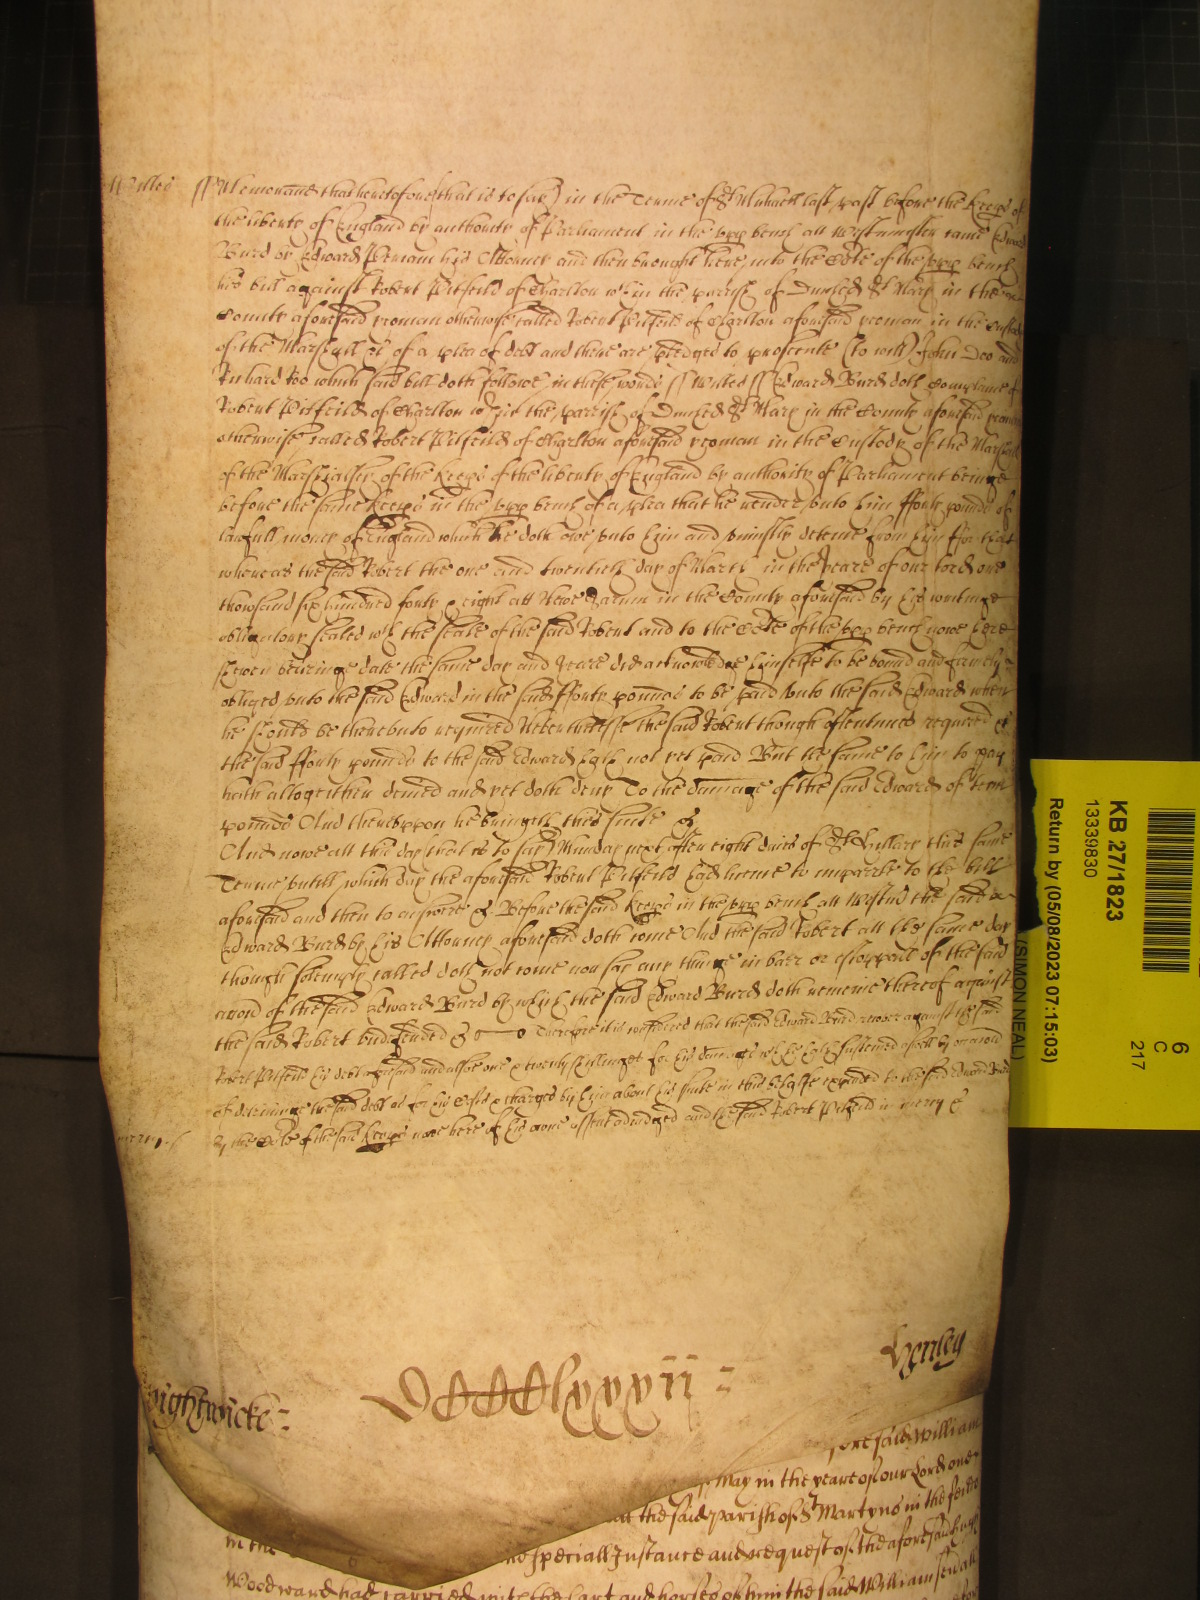 Wiltes ss Memorand that heretofore (that is to say) in the Terme of St Michaell last past before the Keeps of
the liberty of England by authority of Parliament in the vpp bench att Westminster came Edward
Burd by Edward Periam his Attorney and then brought here into the Cote of the vpp bench
his bill against Robert Pitfeild of Charlton wthin the parish of Dunhed St Mary in the
County aforesaid yeoman otherwise called Robert Pitfeild of Charlton aforesaid yeoman in the Custody
of the Marshall &c of a plea of debt and there are pledges to prosecute (to witt) John Doo and
Richard Roo which said bill doth followe in these words ss Wiltes ss Edward Burd doth Complaine of
Robert Pitfeild of Charlton wthin the parrish of Dunhed St Mary in the County aforesaid yeoman
otherwise called Robert Pitfeild of Charlton aforesaid yeoman in the Custody of the Marshall
of the Marshalsey of the Keeps of the liberty of England by authority of Parliament beinge
before the same Keeps in the vpp bench of a plea that he render vnto him ffourty pounds of
lawfull money of England which he doth owe vnto him and vniustly deteine from him ffor that
whereas the said Robert the one and twentieth day of March in the yeare of our lord one
thowsand six hundred forty & eight att Newe Sarum in the County aforesaid by his writinge
obligatory sealed wth the seale of the said Robert and to the Cote of the vpp bench nowe here
shewen bearinge date the same day and yeare did acknowledge himselfe to be bound and firmely
obliged vnto the said Edward in the said ffourty pounds to be paid vnto the said Edward when
he should be therevnto required Neverthelesse the said Robert though oftentimes required &c
the said ffourty pounds to the said Edward hath not yet paid But the same to him to pay
hath altogeither denied and yet doth deny To the damage of the said Edward of tenn
pounds And therevppon he bringeth this suite &c
And nowe att this day (that is to say) Munday next after eight daies of St Hillary this same
Terme vntill which day the aforesaid Robert Pitfeild had licence to imparle to the bill
aforesaid and then to answere &c Before the said Keeps in the vpp bench att Westm the said
Edward Burd by his Attorney aforesaid doth come And the said Robert att the same day
though solemply called doth not come nor say any thinge in barr or estoppell of the said
accon of the said Edward Burd by which the said Edward Burd doth remeine thereof against
the said Robert vndefended &c Therefore it is considered that the said Edward Burd recover against the said
Robert Pitfeild his debt aforesaid and alsoe one & twenty shillinges for his damages wch he hath susteined aswell by occasion
of deteininge the said debt as for his Costs & charges by him about his suite in this behalfe expended to the said Edward Burd
by the Cote of the said Keeps nowe here of his owne assent adiudged and the said Robert Pitfeild in mercy &c
mercy
Henley
Wightwicke
DCCCClxxxii
foresaid William
May in the yeare of our Lord one
att the said parish of St Martyns in the feilds
in the
speciall Instance and request of the aforesaid
Woodward had carried with the cart and horses of him the said William
KB 27/1823
13339830
Return by (05/08/2023 07:15:03)
(SIMON NEAL)
6
C
217